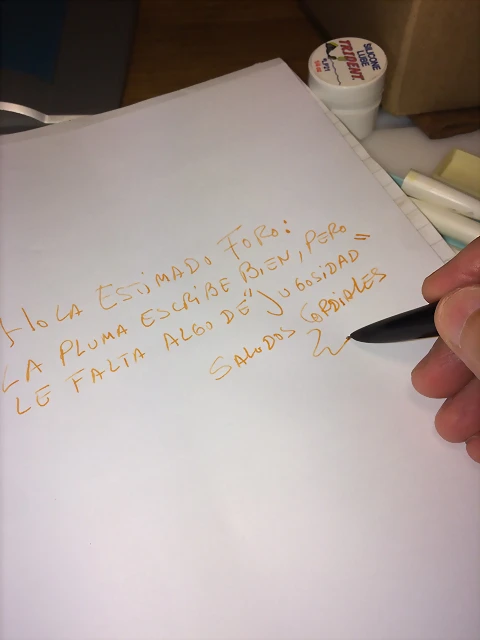 SILICONE
LUBE
TRIDENT
HOLA ESTIMADO FORO:
LA PLUMA ESCRIBE BIEN, PERO
LE FALTA ALGO DE "JUGOSIDAD"
SALUDOS CORDIALES